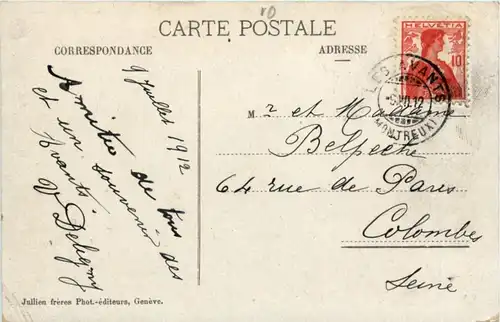 CARTE POSTALE
CORRESPONDANCE
ADRESSE
HELVETIA
10
LES AVANTS
12
(MONTREUX)
9 Juillet 1912
Amitiés de tous
et un souvenir des
Avants
V Deligny
M r et Madame
Belpeche
64 rue de Paris
Colombes
Seine
Jullien frères Phot.-éditeurs, Genève.